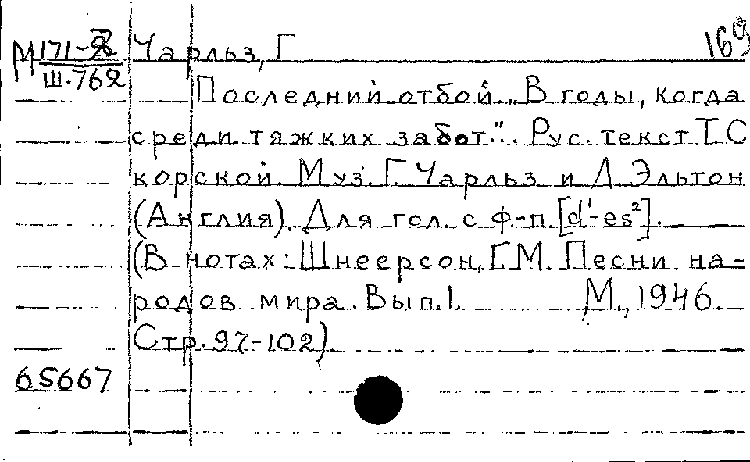 М 171-8 Чарльз, Г 169
Ш.762
Последний отбой „В годы, когда
среди тяжких забот". Рус. текст Т. С
корской. Муз. Г. Чарльз и Д. Эльтон
(Англия). Для гол. с ф-п. [d¹-es²].
(В нотах: Шнеерсон, Г.М. Песни на-
родов мира. Вып.1. М., 1946.
Стр. 97-102).
65667